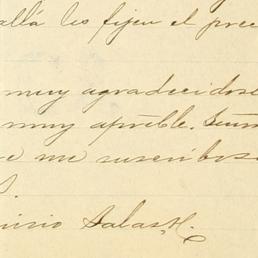 allá les fijen el prec
muy agradecidos
muy apreble. Sum
e me suscribo s
S.
nisio Salas, H.